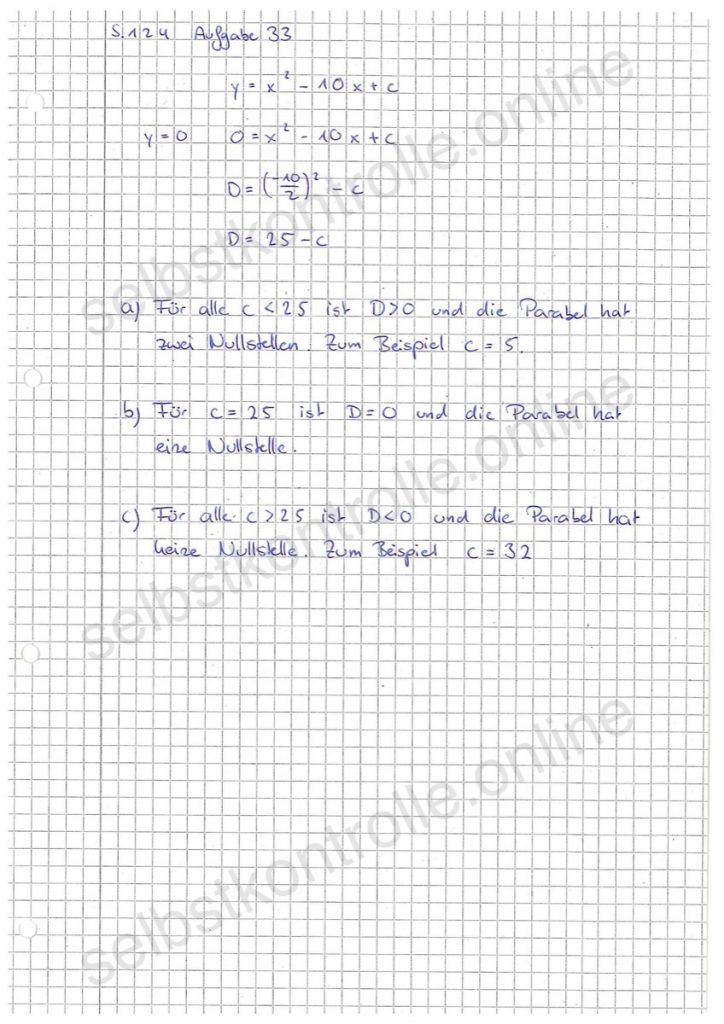 S.124 Aufgabe 33
y = x² - 10x + c
y = 0 0 = x² - 10x + c
D = (-10/2)² - c
D = 25 - c
a) Für alle c < 25 ist D > 0 und die Parabel hat
zwei Nullstellen. Zum Beispiel c = 5.
b) Für c = 25 ist D = 0 und die Parabel hat
eine Nullstelle.
c) Für alle c > 25 ist D < 0 und die Parabel hat
keine Nullstelle. Zum Beispiel c = 32
selbstkontrolle.online
selbstkontrolle.online
selbstkontrolle.online